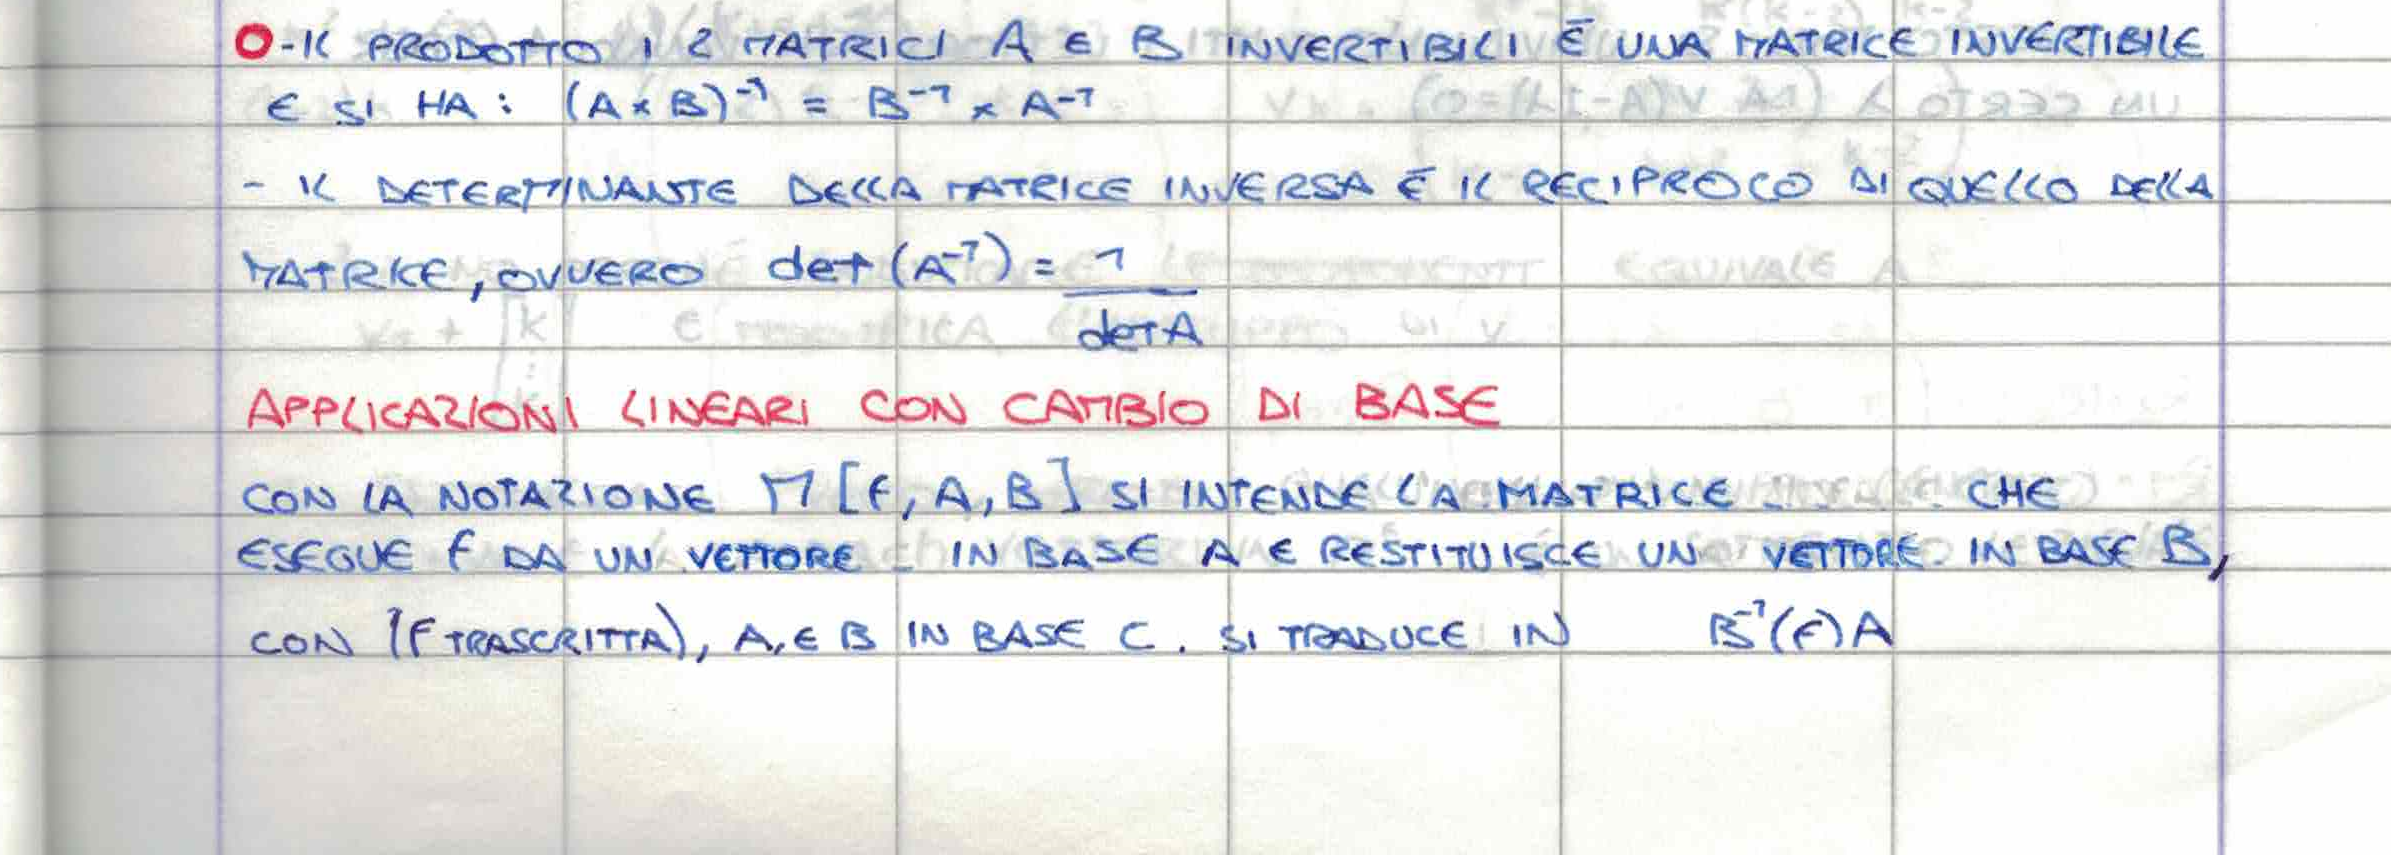 O-IL PRODOTTO I 2 MATRICI A E B INVERTIBILI È UNA MATRICE INVERTIBILE
E SI HA: (A×B)⁻¹ = B⁻¹ × A⁻¹
- IL DETERMINANTE DELLA MATRICE INVERSA È IL RECIPROCO DI QUELLO DELLA
MATRICE, OVVERO det (A⁻¹) = 1
detA
APPLICAZIONI LINEARI CON CAMBIO DI BASE
CON LA NOTAZIONE M [f, A, B] SI INTENDE LA MATRICE CHE
ESEGUE f DA UN VETTORE IN BASE A E RESTITUISCE UN VETTORE IN BASE B,
CON (F TRASCRITTA), A, E B IN BASE C. SI TRADUCE IN B⁻¹(f)A